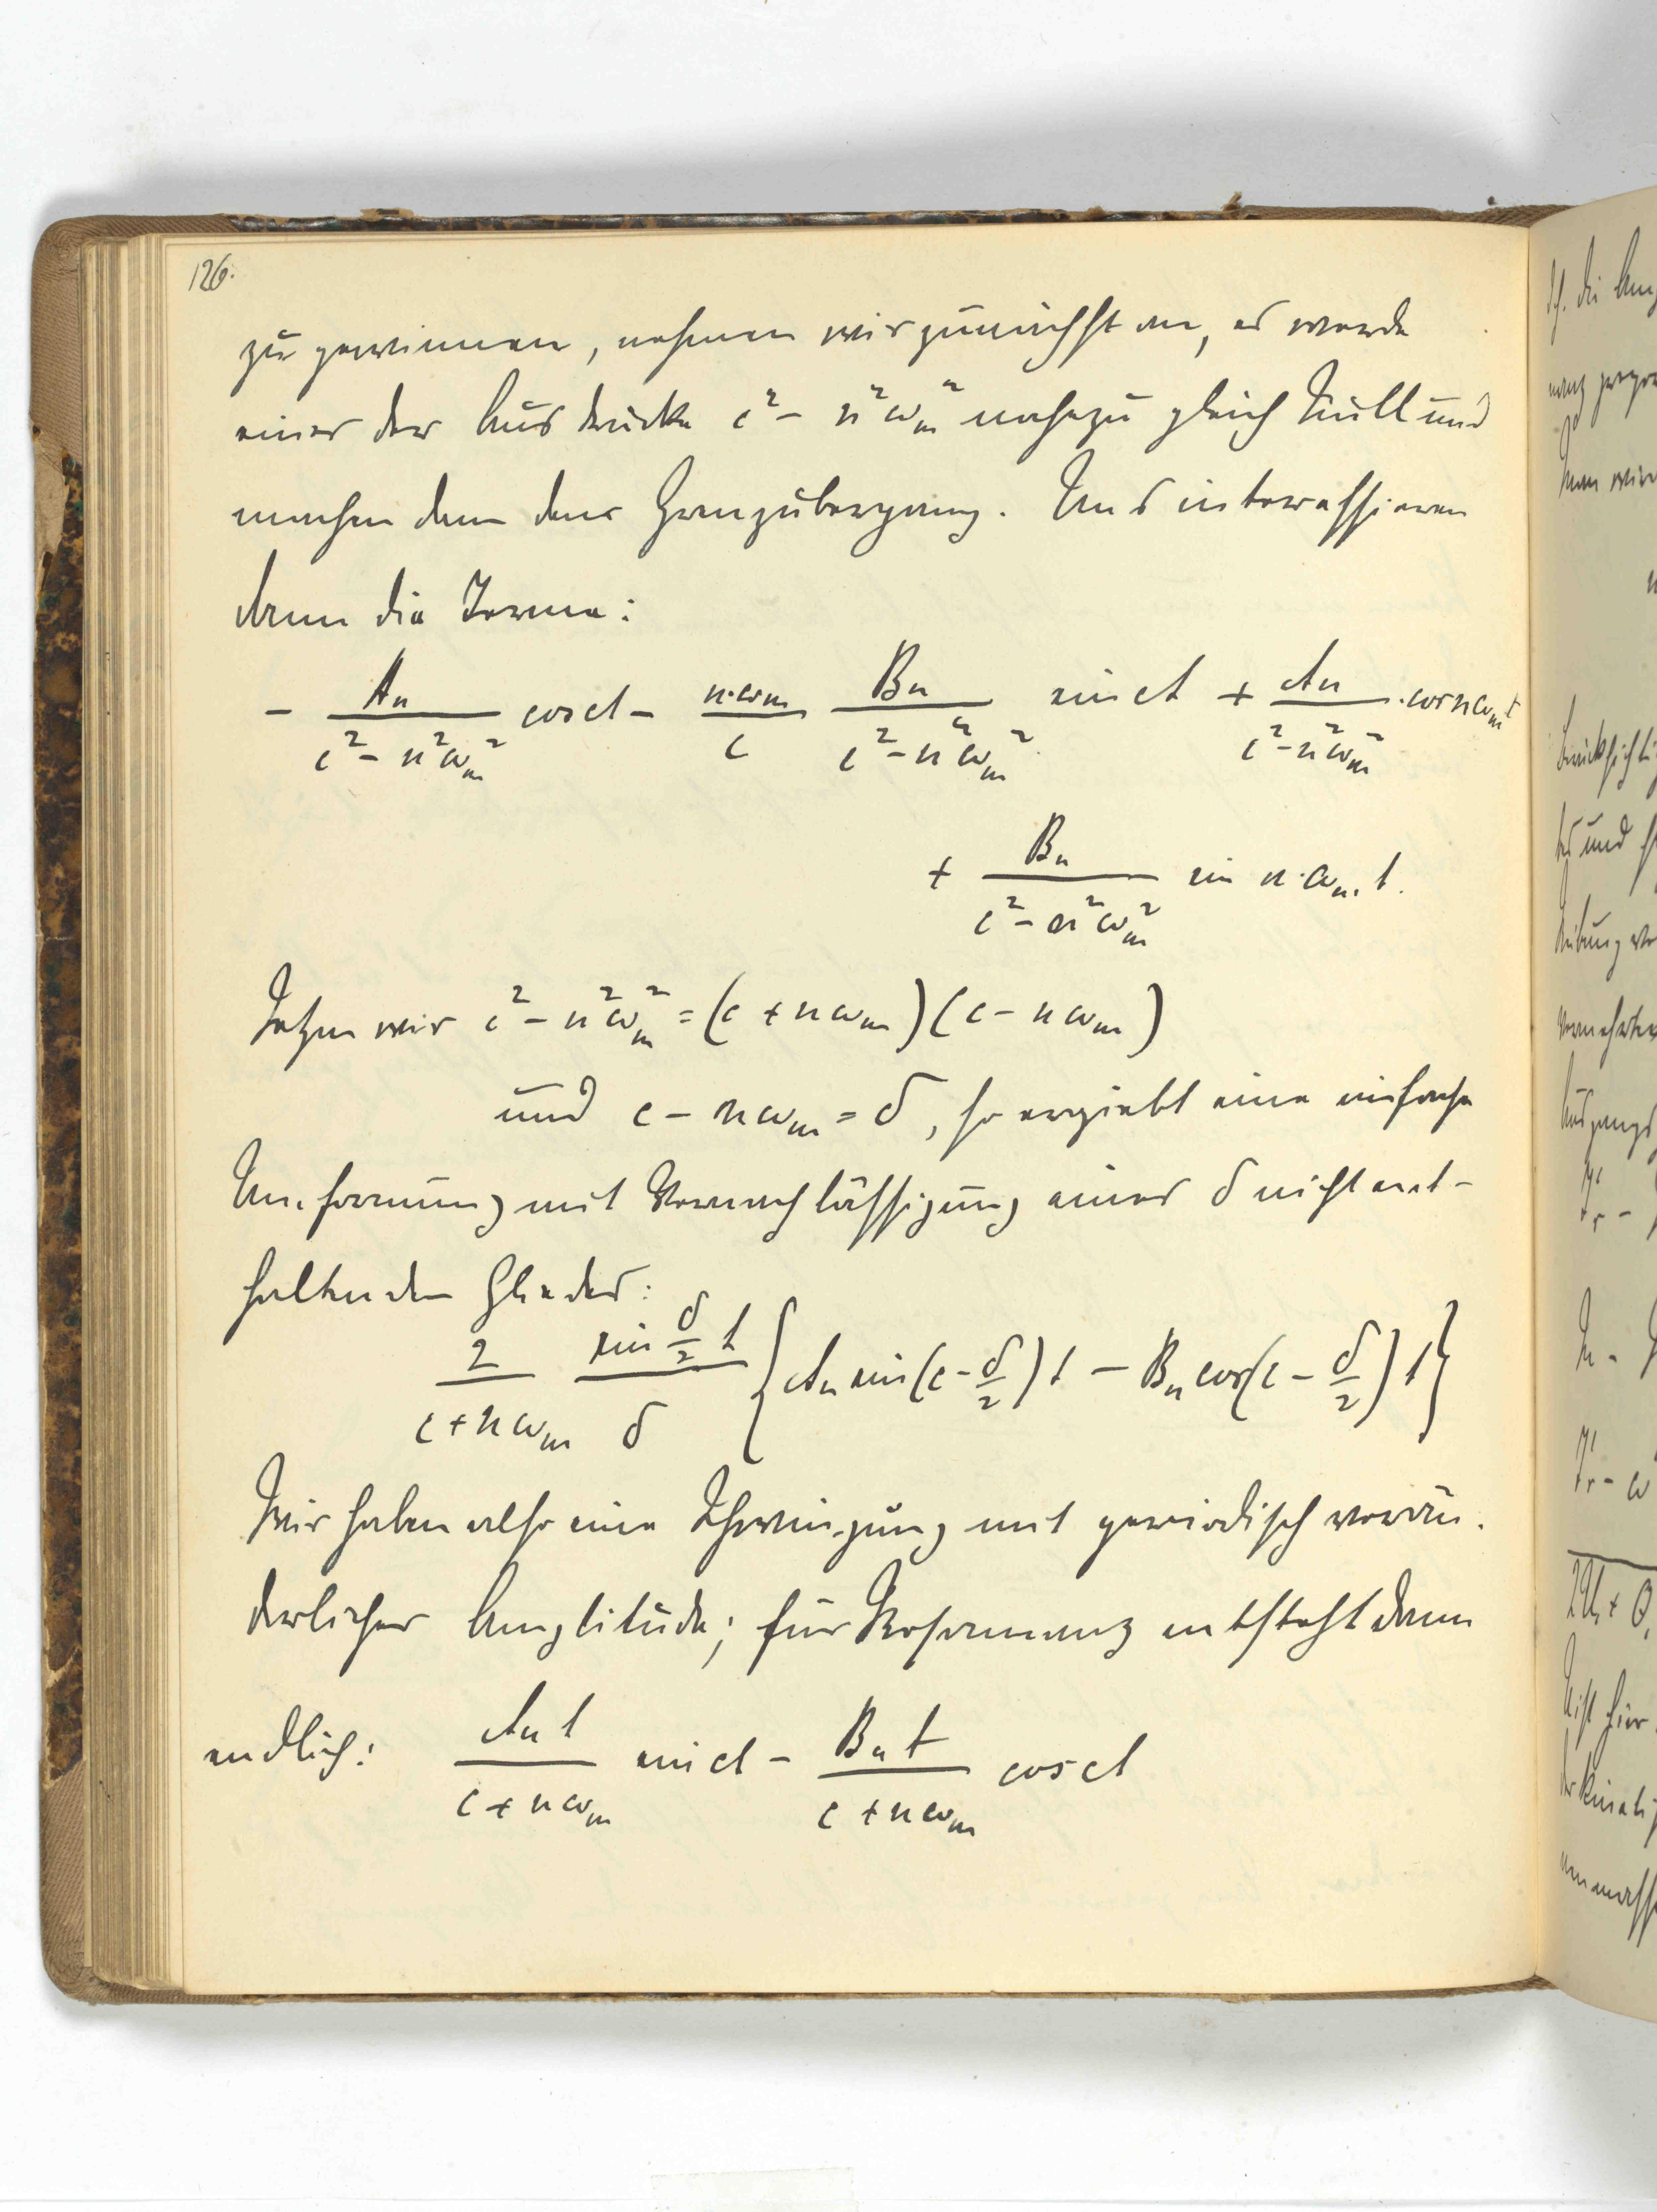 126.
zu gewinnen, nehmen wir zunächst an, es werde
einer der Ausdrücke c² - n²ω_m² nahezu gleich Null und
machen dann den Grenzübergang. Uns interessieren
dann die Terme:
- A_n / (c² - n²ω_m²) cos ct - n·ω_m / c B_n / (c² - n²ω_m²) sin ct + A_n / (c² - n²ω_m²) · cos nω_m t
+ B_n / (c² - n²ω_m²) sin n·ω_m t.
Setzen wir c² - n²ω_m² = (c + nω_m)(c - nω_m)
und c - nω_m = δ, so ergiebt eine einfache
Umformung mit Vernachlässigung eines δ nicht ent-
haltenden Gliedes:
2 / (c + nω_m) sin δ/2 t / δ {A_n sin(c - δ/2)t - B_n cos(c - δ/2)t}
Wir haben also eine Schwingung mit periodisch verän-
derlicher Amplitude; für Resonanz entsteht dann
endlich: A_n t / (c + nω_m) sin ct - B_n t / (c + nω_m) cos ct